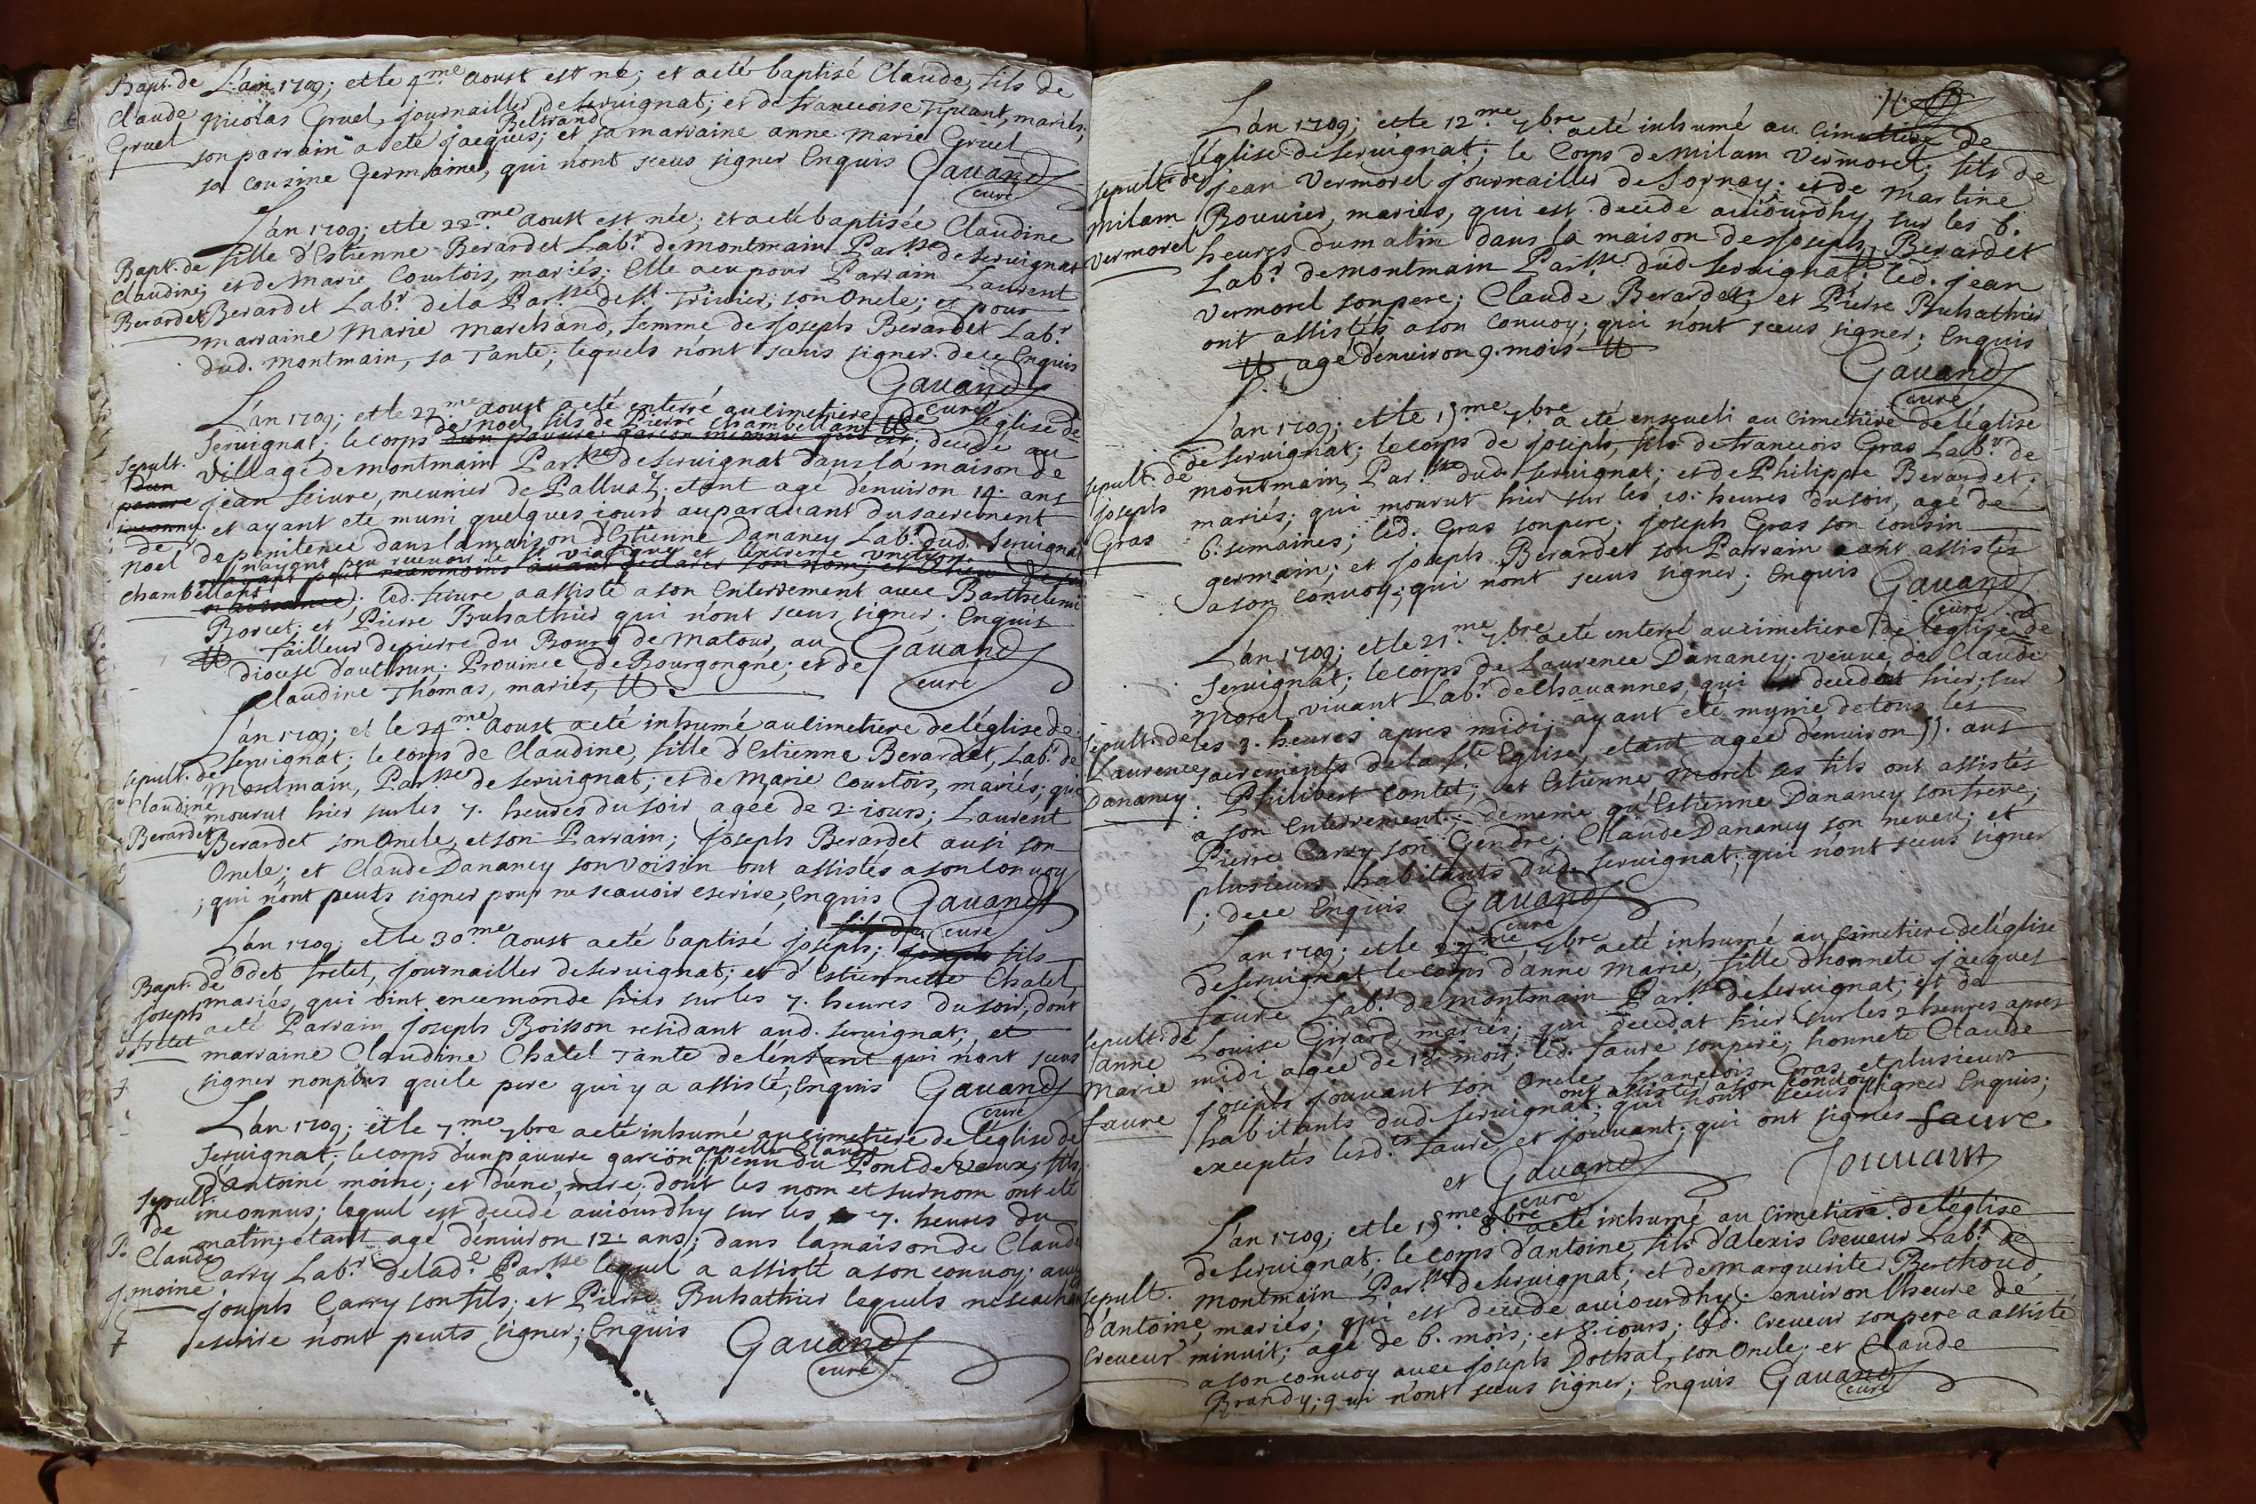 Bapt. de
Claude
Gruel
L'an 1709; et le 4.me Aoust est né; et a eté baptisé Claude, fils de
Nicolas Gruel, journallier de Seruignat; et de francoise Tipiant, mariés;
Beltrand
son parrain a eté Jacques; et sa marraine anne Marie Gruel
sa cousine Germaine, qui n'ont sceus signer Enquis Gauand
curé
Bapt. de
Claudine
Berardet
L'an 1709; et le 22.me Aoust est née; et a eté baptisée Claudine
fille d'Estienne Berardet Lab.r de Montmain Par.sse de Seruignat
et de Marie Courtois, mariés; Elle a eu pour Parrain Laurent
Berardet Lab.r de la Par.sse de S.t Triuier, son Oncle; et pour
marraine Marie Marchand, femme de Joseph Berardet Lab.r
dud. Montmain, sa Tante; lequels n'ont sceus signer. de ce Enquis
Gauand
curé
Sepult.
d'un
pauure
inconny.
de
Noel
Chambellant
L'an 1709; et le 22.me Aoust a eté enterré au cimetiere de l'église de
de Noel, fils de Pierre Chambellant
Seruignat; le corps d'un pauure garcon inconnu qui est; decedé au
village de Montmain Par.sse de Seruignat dans la maison de
Jean Feiure, meunier de Palluat; etant agé d'enuiron 14. ans
et ayant eté muni quelques iours auparauant du sacrement
de penitence dans la maison d'Estienne Dananey Lab.r dud. Seruignat
n'ayant peu receuoir le S.t viatique et l'extreme vnction.
led. feiure a assisté a son Enterrement auec Barthelemi
Borcet; et Pierre Buhathier qui n'ont sceus signer. Enquis
Tailleur de pierre du Bourg de Matour, au
diocese d'authun; Prouince de Bourgongne; et de
Claudine Thomas, mariés,
Gauand
curé
Sepult. de
Claudine
Berardet
L'an 1709; et le 24.me Aoust a eté inhumé au cimetiere de l'église de
Seruignat; le corps de Claudine, fille d'Estienne Berardet, Lab.r de
Montmain, Par.sse de Seruignat; et de Marie Courtois, mariés; qui
mourut hier sur les 7. heures du soir agée de 2. iours; Laurent
Berardet son Oncle, et son Parrain; Joseph Berardet ausi son
Oncle; et Claude Dananey son voisin ont assistés a son conuoy
; qui n'ont peuts signer pour ne scauoir escrire; Enquis Gauand
curé
Bapt. de
Joseph
fretet
L'an 1709; et le 30.me Aoust a eté baptisé Joseph; fils
d'Odet fretet, Journallier de Seruignat; et d'Estiennette Chatel,
mariés, qui vint en ce monde hier sur les 7. heures du soir, dont
a eté Parrain Joseph Boisson residant aud. Seruignat; et
marraine Claudine Chatel Tante de l'enfant qui n'ont sceus
signer non plus que le pere qui y a assisté; Enquis Gauand
curé
Sepult.
de
Claude
moine
L'an 1709; et le 7.me 7.bre a eté inhumé au cimetiere de l'église de
appellé Claude
Seruignat; le corps d'un pauure garcon, venu du Pont de Vaux; fils
d'Antoine moine; et d'une mere, dont les nom et surnom ont eté
inconnus; lequel est decedé auiourdhy sur les 7. heures du
matin; etant agé d'enuiron 12. ans; dans la maison de Claude
Carry Lab.r de lad.e Par.sse lequel a assisté a son conuoy; auec
Joseph Carry son fils; et Pierre Buhathier lequels ne scachant
escrire n'ont peuts signer; Enquis Gauand
curé
Sepult. de
Milam
Vermorel
L'an 1709; et le 12.me 7.bre a eté inhumé au Cimetiere de
l'église de Seruignat; le Corps de Milam Vermorel, fils de
Jean Vermorel Journallier de Sornay; et de Martine
Bouuier, mariés, qui est decedé auiourdhy sur les 6.
heures du matin dans la maison de Joseph Berardet
Lab.r de Montmain Par.sse dud. Seruignat; led. Jean
Vermorel son pere; Claude Berardet; et Pierre Buhathier
ont assistés a son conuoy; qui n'ont sceus signer; Enquis
agé d'enuiron 9. mois
Gauand
curé
Sepult. de
Joseph
Gras
L'an 1709; et le 15.me 7.bre a eté enseueli au cimetiere de l'église
de Seruignat; le corps de Joseph, fils de francois Gras Lab.r de
Montmain, Par.sse dud. Seruignat; et de Philippe Berardet;
mariés; qui mourut hier sur les 10. heures du soir, agé de
6. semaines; led. Gras son pere; Joseph Gras son cousin
germain; et Joseph Berardet son Parrain aant assistés
a son conuoy; qui n'ont sceus signer; Enquis Gauand
curé
Sepult. de
Laurence
Dananey
L'an 1709; et le 21.me 7.bre a eté enterré au cimetiere de l'église de
Seruignat; le corps de Laurence Dananey; veuue de Claude
Morel viuant Lab.r de Chauannes, qui decedat hier; sur
les 3. heures apres midi; ayant eté mynie de tous les
sacrements de la S.te Eglise, etant agée d'enuiron 55. ans
Philibert contet; et Estienne Morel ses fils ont assistés
a son Enterrement; de meme qu'Estienne Dananey son frere;
Pierre Carry son Gendre; Claude Dananey son neueu; et
plusieurs habitants dud. Seruignat; qui n'ont sceus signer
; de ce Enquis Gauand
curé
Sepult. de
anne
Marie
faure
L'an 1709; et le 27.me 7.bre a eté inhumé au cimetiere de l'église
de Seruignat le corps d'anne Marie, fille d'honnete Jacques
faure Lab.r de Montmain Par.sse de Seruignat; et de
Louise Girard, mariés; qui decedat hier sur les 2 heures apres
midi agée de mois; led. faure son pere; honnete Claude
Joseph Jouuant son Oncle; francois Gras, et plusieurs
ont assistés a son conuoy
habitants dud. Seruignat; qui n'ont sceus signer Enquis;
exceptés lesd.ts faure, et Jouuant; qui ont signés faure
et Gauand Jouuant
curé
Sepult.
d'Antoine
Creueur
L'an 1709; et le 15.me 8.bre a eté inhumé au cimetiere de l'église
de Seruignat; le corps d'antoine, fils d'Alexis Creueur Lab.r de
Montmain Par.sse de Seruignat; et de Marguerite Berthoud,
mariés; qui est decedé auiourdhy enuiron l'heure de
minuit; agé de 6. mois; et 8. iours; led. Creueur son pere a assisté
a son conuoy auec Joseph Dothal, son Oncle; et Claude
Brandy; qui n'ont sceus signer; Enquis Gauand
curé